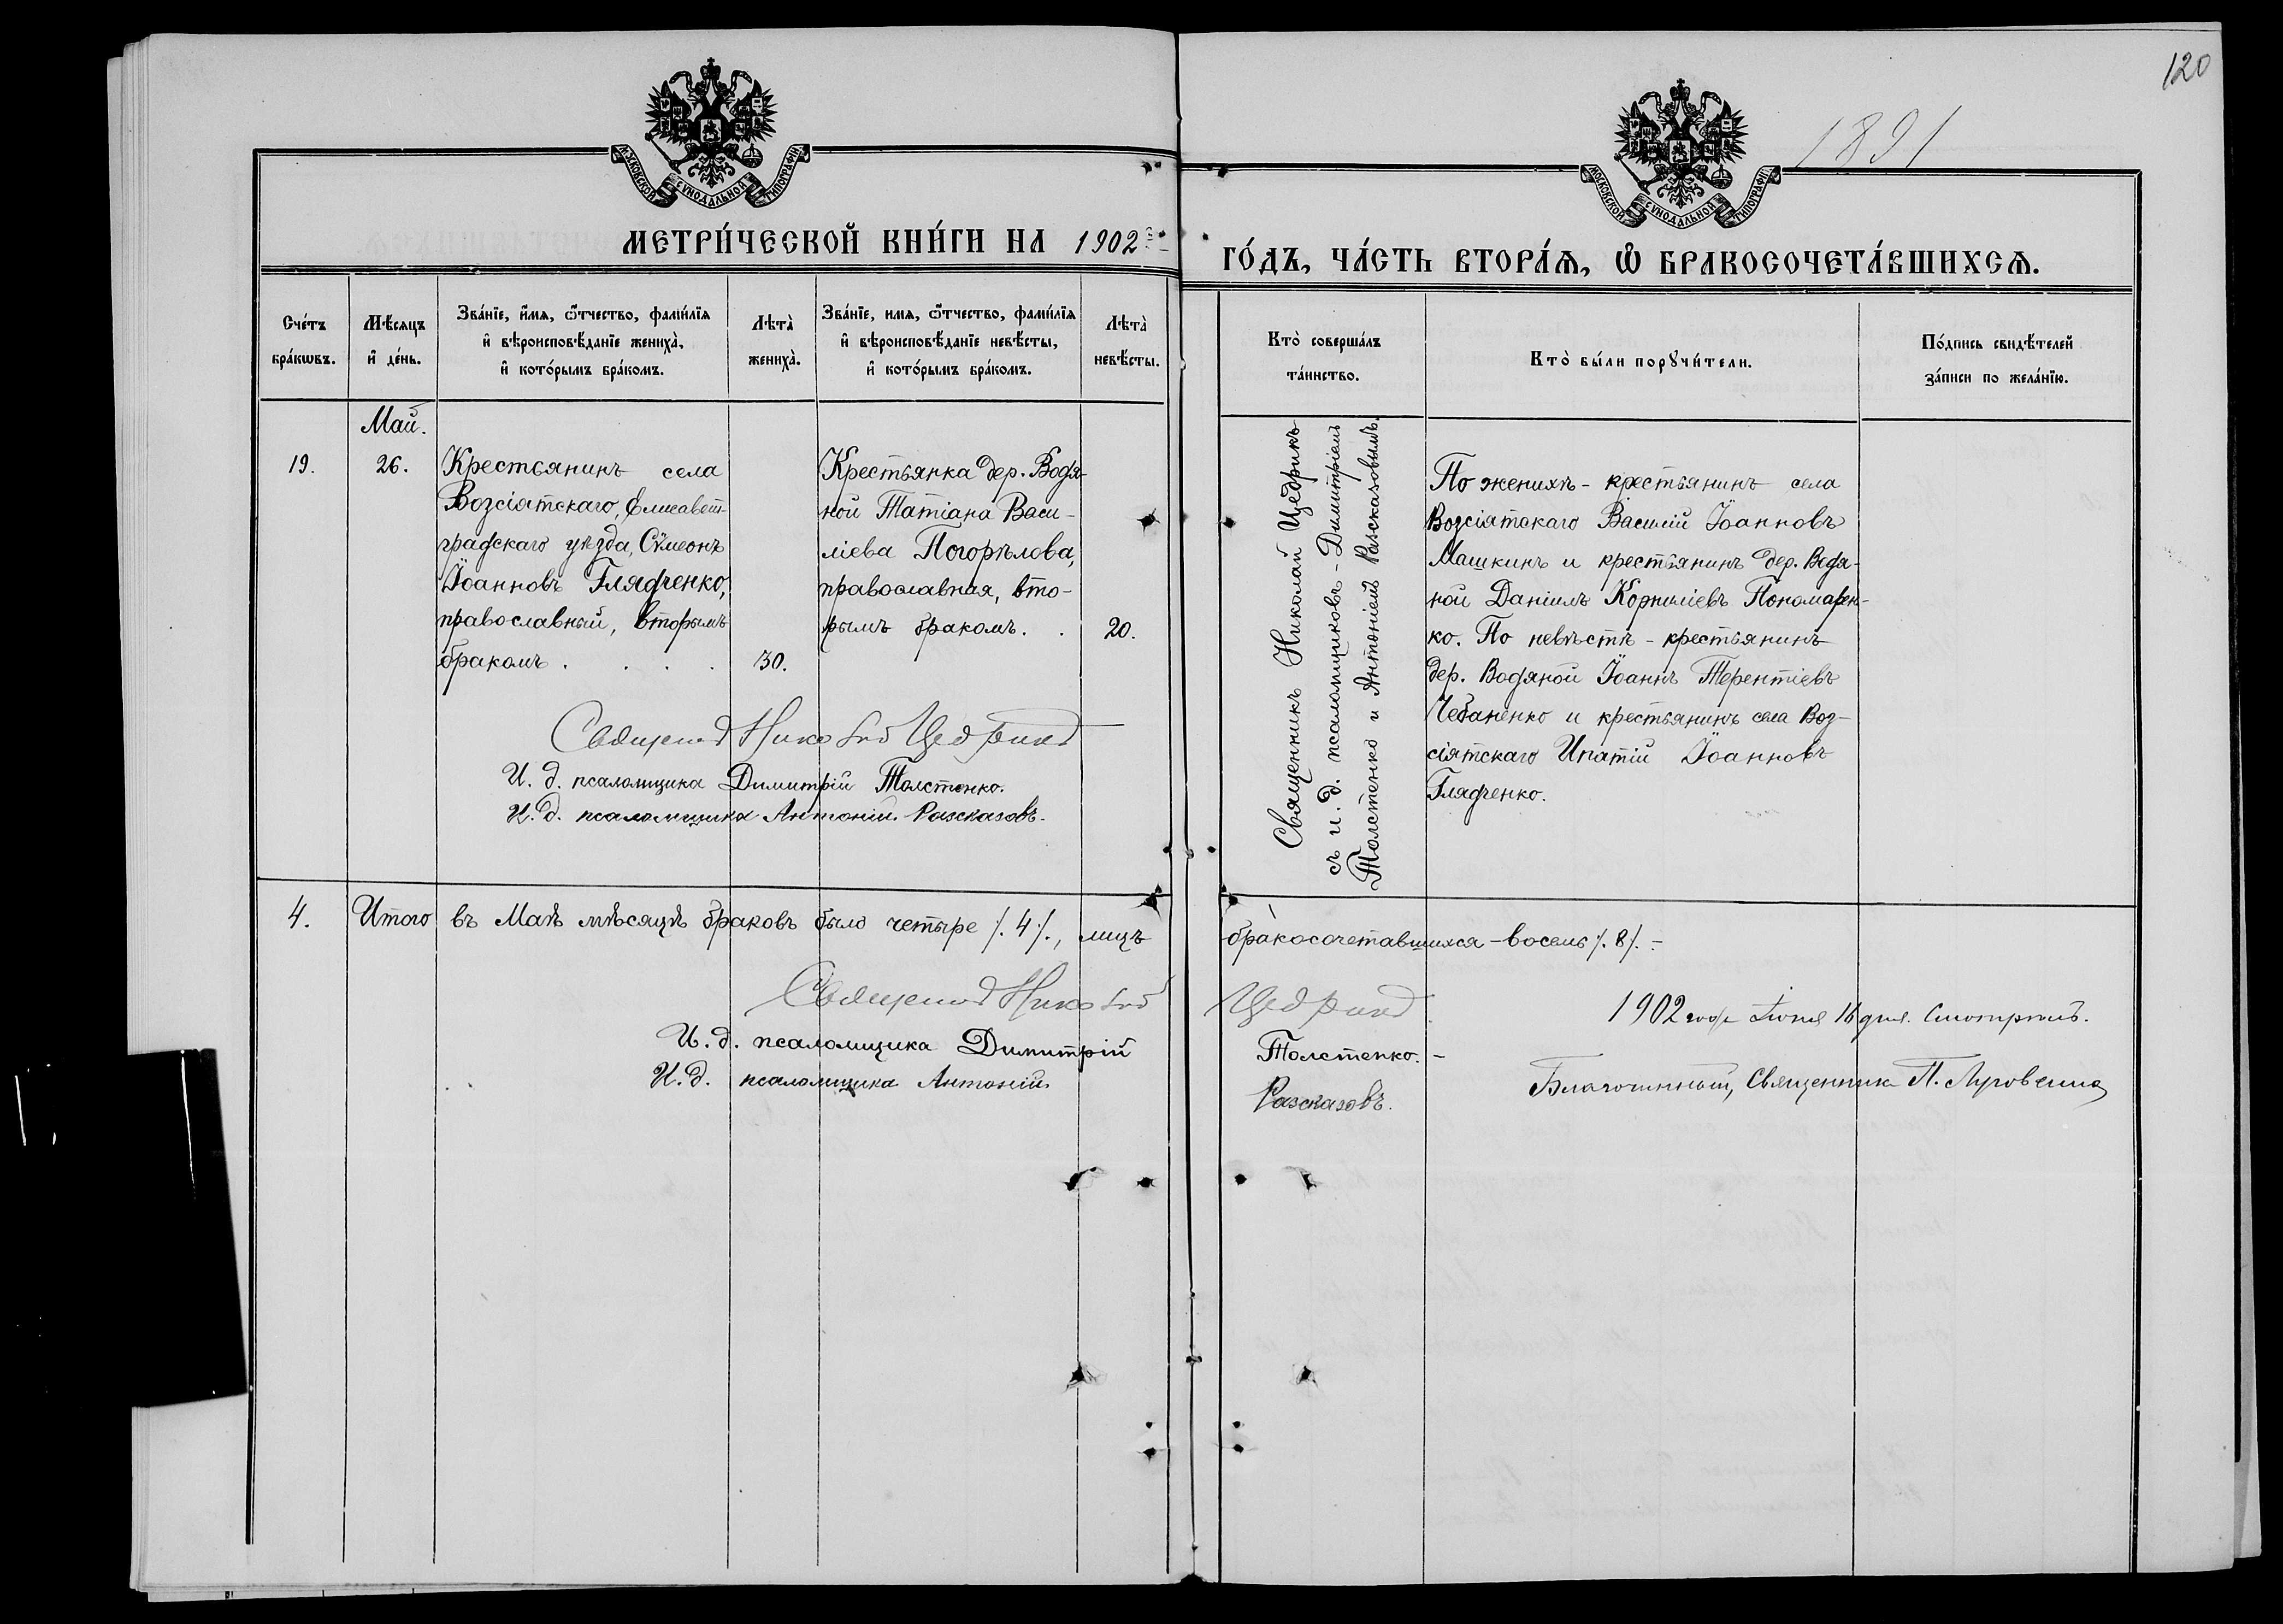 120
1891
МОСКОВСКОЙ СѴНОДАЛЬНОЙ ТИПОГРАФІИ
МОСКОВСКОЙ СѴНОДАЛЬНОЙ ТИПОГРАФІИ
МЕТРИ́ЧЕСКОЙ КНИ́ГИ НА 1902
ГО́ДЪ, ЧА́СТЬ ВТОРА́Ѧ, Ѡ҆ БРАКОСОЧЕТА́ВШИХСѦ.
Сче́тъ
бра́кѡвъ.
Мѣ́сяцъ
и҆ де́нь.
Зва́нїе, и҆́мѧ, ѻ҆́тчество, фами́лїѧ
и҆ вѣроисповѣ́данїе жениха̀,
и҆ кото́рымъ бра́комъ.
Лѣта̀
жениха̀.
Зва́нїе, имѧ, ѻ҆́тчество, фами́лїѧ
и҆ вѣроисповѣ́данїе невѣ́сты,
и҆ кото́рымъ бра́комъ.
Лѣта̀
невѣ́сты.
Кто̀ соверша́лъ
та́инство.
Кто̀ бы́ли порꙋчи́тели.
По́дпись свидѣ́телей
за́писи по жела́нїю.
Май.
19.
26.
Крестьянинъ села
Возсіятскаго, Елисавет-
градскаго уѣзда, Сѵмеонъ
Іоанновъ Глядченко,
православный, вторымъ
бракомъ . . . .
30.
Крестьянка дер. Водя-
ной Татіана Васи-
ліева Погорѣлова,
православная, вто-
рымъ бракомъ. .
20.
Священникъ Николай Цедрикъ
съ и. д. псаломщиковъ - Димитріемъ
Толстенко и Антоніемъ Разсказовымъ.
По женихѣ - крестьянинъ села
Возсіятскаго Василій Іоанновъ
Машкинъ и крестьянинъ дер. Водя-
ной Даніилъ Корниліевъ Пономарен-
ко. По невѣстѣ - крестьянинъ
дер. Водяной Іоаннъ Терентіевъ
Чебаненко и крестьянинъ села Воз-
сіятскаго Ипатій Іоанновъ
Глядченко.
Священникъ Николай Цедрикъ
И. д. псаломщика Димитрій Толстенко.
И. д. псаломщика Антоній Разсказовъ.
4. Итого въ Маѣ мѣсяцѣ браковъ было четыре /. 4 /., лицъ
бракосочетавшихся - восемь /. 8 /. -
Священникъ Николай Цедрикъ
И. д. псаломщика Димитрій Толстенко. -
И. д. псаломщика Антоній Разсказовъ.
1902 года Іюня 16 дня. Смотрѣлъ.
Благочинный, Священникъ П.